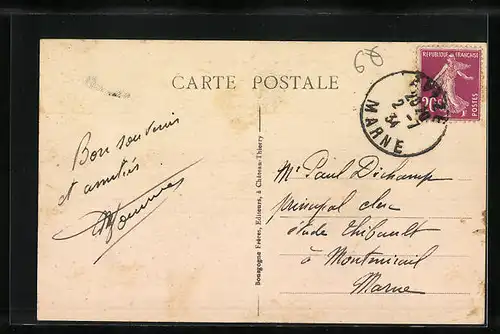 CARTE POSTALE
REPUBLIQUE FRANÇAISE
20c
POSTES
2-7
34
MARNE
Bon souvenir
et amitiés
Bourgogne Frères, Editeurs, à Château-Thierry
Mr Paul Déchamp
principal clerc
étude Thibault
à Montmirail
Marne